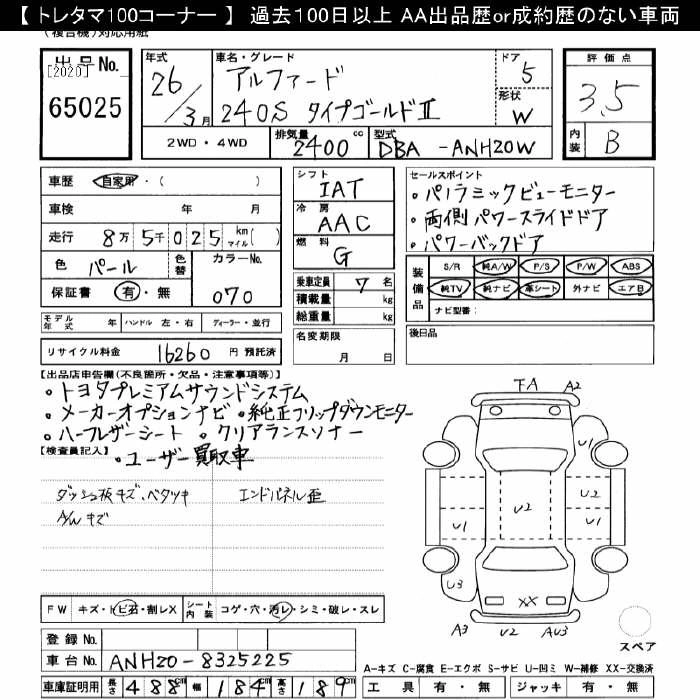 【 トレタマ100コーナー 】 過去100日以上 AA出品歴or成約歴のない車両
(複合機)対応用紙
出品No.
[2020]
65025
年式
26/3月
車名・グレード
アルファード
240S タイプゴールドⅡ
ドア
5
形状
W
評価点
3.5
内装
B
2WD・4WD
排気量
2400 cc
型式
DBA -ANH20W
車歴
自家用・( )
車検 年 月
走行 8万 5千 0 2 5 km マイル( )
色 パール
色替
カラーNo.
070
保証書 有・無
シフト
IAT
冷房
AAC
燃料
G
乗車定員 7名
積載量 kg
総重量 kg
セールスポイント
・パノラミックビューモニター
・両側パワースライドドア
・パワーバックドア
装備品
S/R 純A/W P/S P/W ABS
純TV 純ナビ 革シート 外ナビ エアB
ナビ型番:
モデル年式 年 ハンドル 左・右 ディーラー・並行
リサイクル料金 16260 円 預託済
名変期限
月 日
後日品
【出品店申告欄(不良箇所・欠品・注意事項等)】
・トヨタプレミアムサウンドシステム
・メーカーオプションナビ ・純正フリップダウンモニター
・ハーフレザーシート ・クリアランスソナー
【検査員記入】
・ユーザー買取車
ダッシュ板キズ、ベタツキ
エンドパネル歪
A/Wキズ
FA
A2
U1
U2
U2
U1
U2
U1
U3
XX
A3
U2
AU3
スペア
FW キズ・トビ石・割レX
シート内装 コゲ・穴・汚レ・シミ・破レ・スレ
登録No.
車台No. ANH20-8325225
車庫証明用 長さ 488cm 幅 184cm 高さ 189cm
A-キズ C-腐食 E-エクボ S-サビ U-凹ミ W-補修 XX-交換済
工具 有・無 ジャッキ 有・無